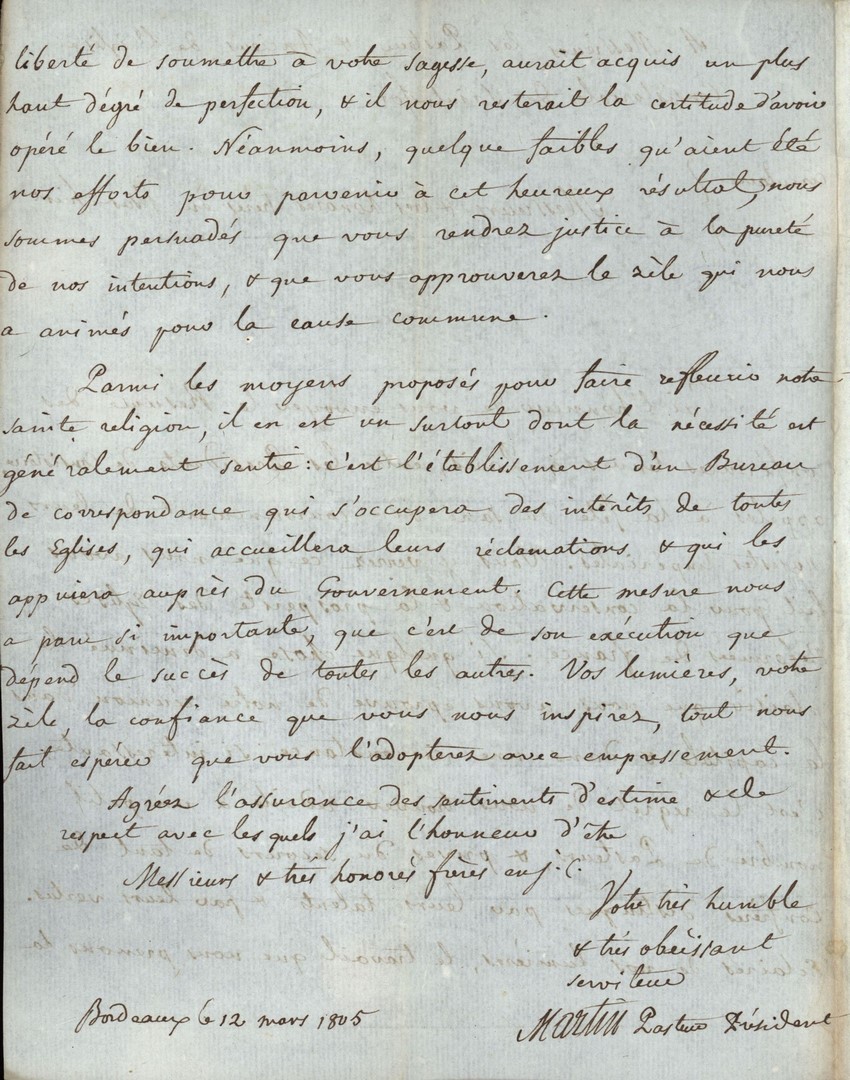 liberté de soumettre à votre sagesse, aurait acquis un plus
haut dégré de perfection, & il nous resterait la certitude d'avoir
opéré le bien. Néanmoins, quelque faibles qu'aient été
nos efforts pour parvenir à cet heureux résultat, nous
sommes persuadés que vous rendrez justice à la pureté
de nos intentions, & que vous approuverez le zèle qui nous
a animés pour la cause commune.
Parmi les moyens proposés pour faire refleurir notre
sainte religion, il en est un surtout dont la nécessité est
généralement sentie: c'est l'établissement d'un Bureau
de correspondance qui s'occupera des intérêts de toutes
les Eglises, qui accueillera leurs réclamations & qui les
appuiera auprès du Gouvernement. Cette mesure nous
a paru si importante, que c'est de son exécution que
dépend le succès de toutes les autres. Vos lumières, votre
zèle, la confiance que vous nous inspirez, tout nous
fait espérer que vous l'adopterez avec empressement.
Agréez l'assurance des sentiments d'estime & de
respect avec lesquels j'ai l'honneur d'être
Messieurs & très honorés frères en J. C.
Votre très humble
& très obéissant
serviteur
Bordeaux le 12 mars 1805
Martin Pasteur Président